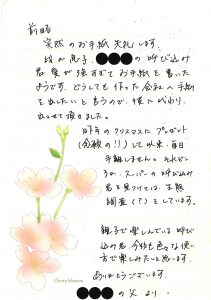 前略
突然のお手紙 失礼します。
我が息子、●●●の呼び込み
君愛が強すぎてお手紙を書いた
ようです。どうしても作った会社へ手紙
を出したいと言うので、僕に代わり、
出させて頂きました。
昨年のクリスマスにプレゼント
(念願の!!)して以来、毎日
手離しません。それどこ
ろか、スーパーの呼び込み
君を見つけては、生態
調査(?)をしています。
親子で楽しんでいる呼び
込み君、今後も色々な使い
方で楽しみたいと思います。
ありがとうございます。
●●●の父より
Cherry blossom